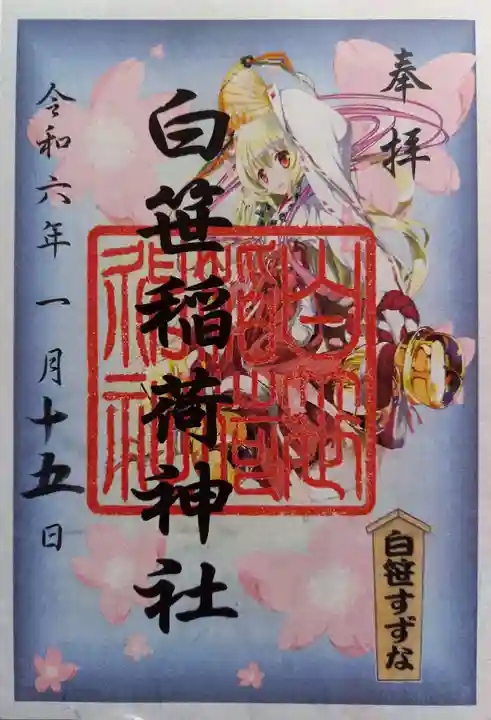 奉拝
白笹稲荷神社
令和六年一月十五日
白笹すずな